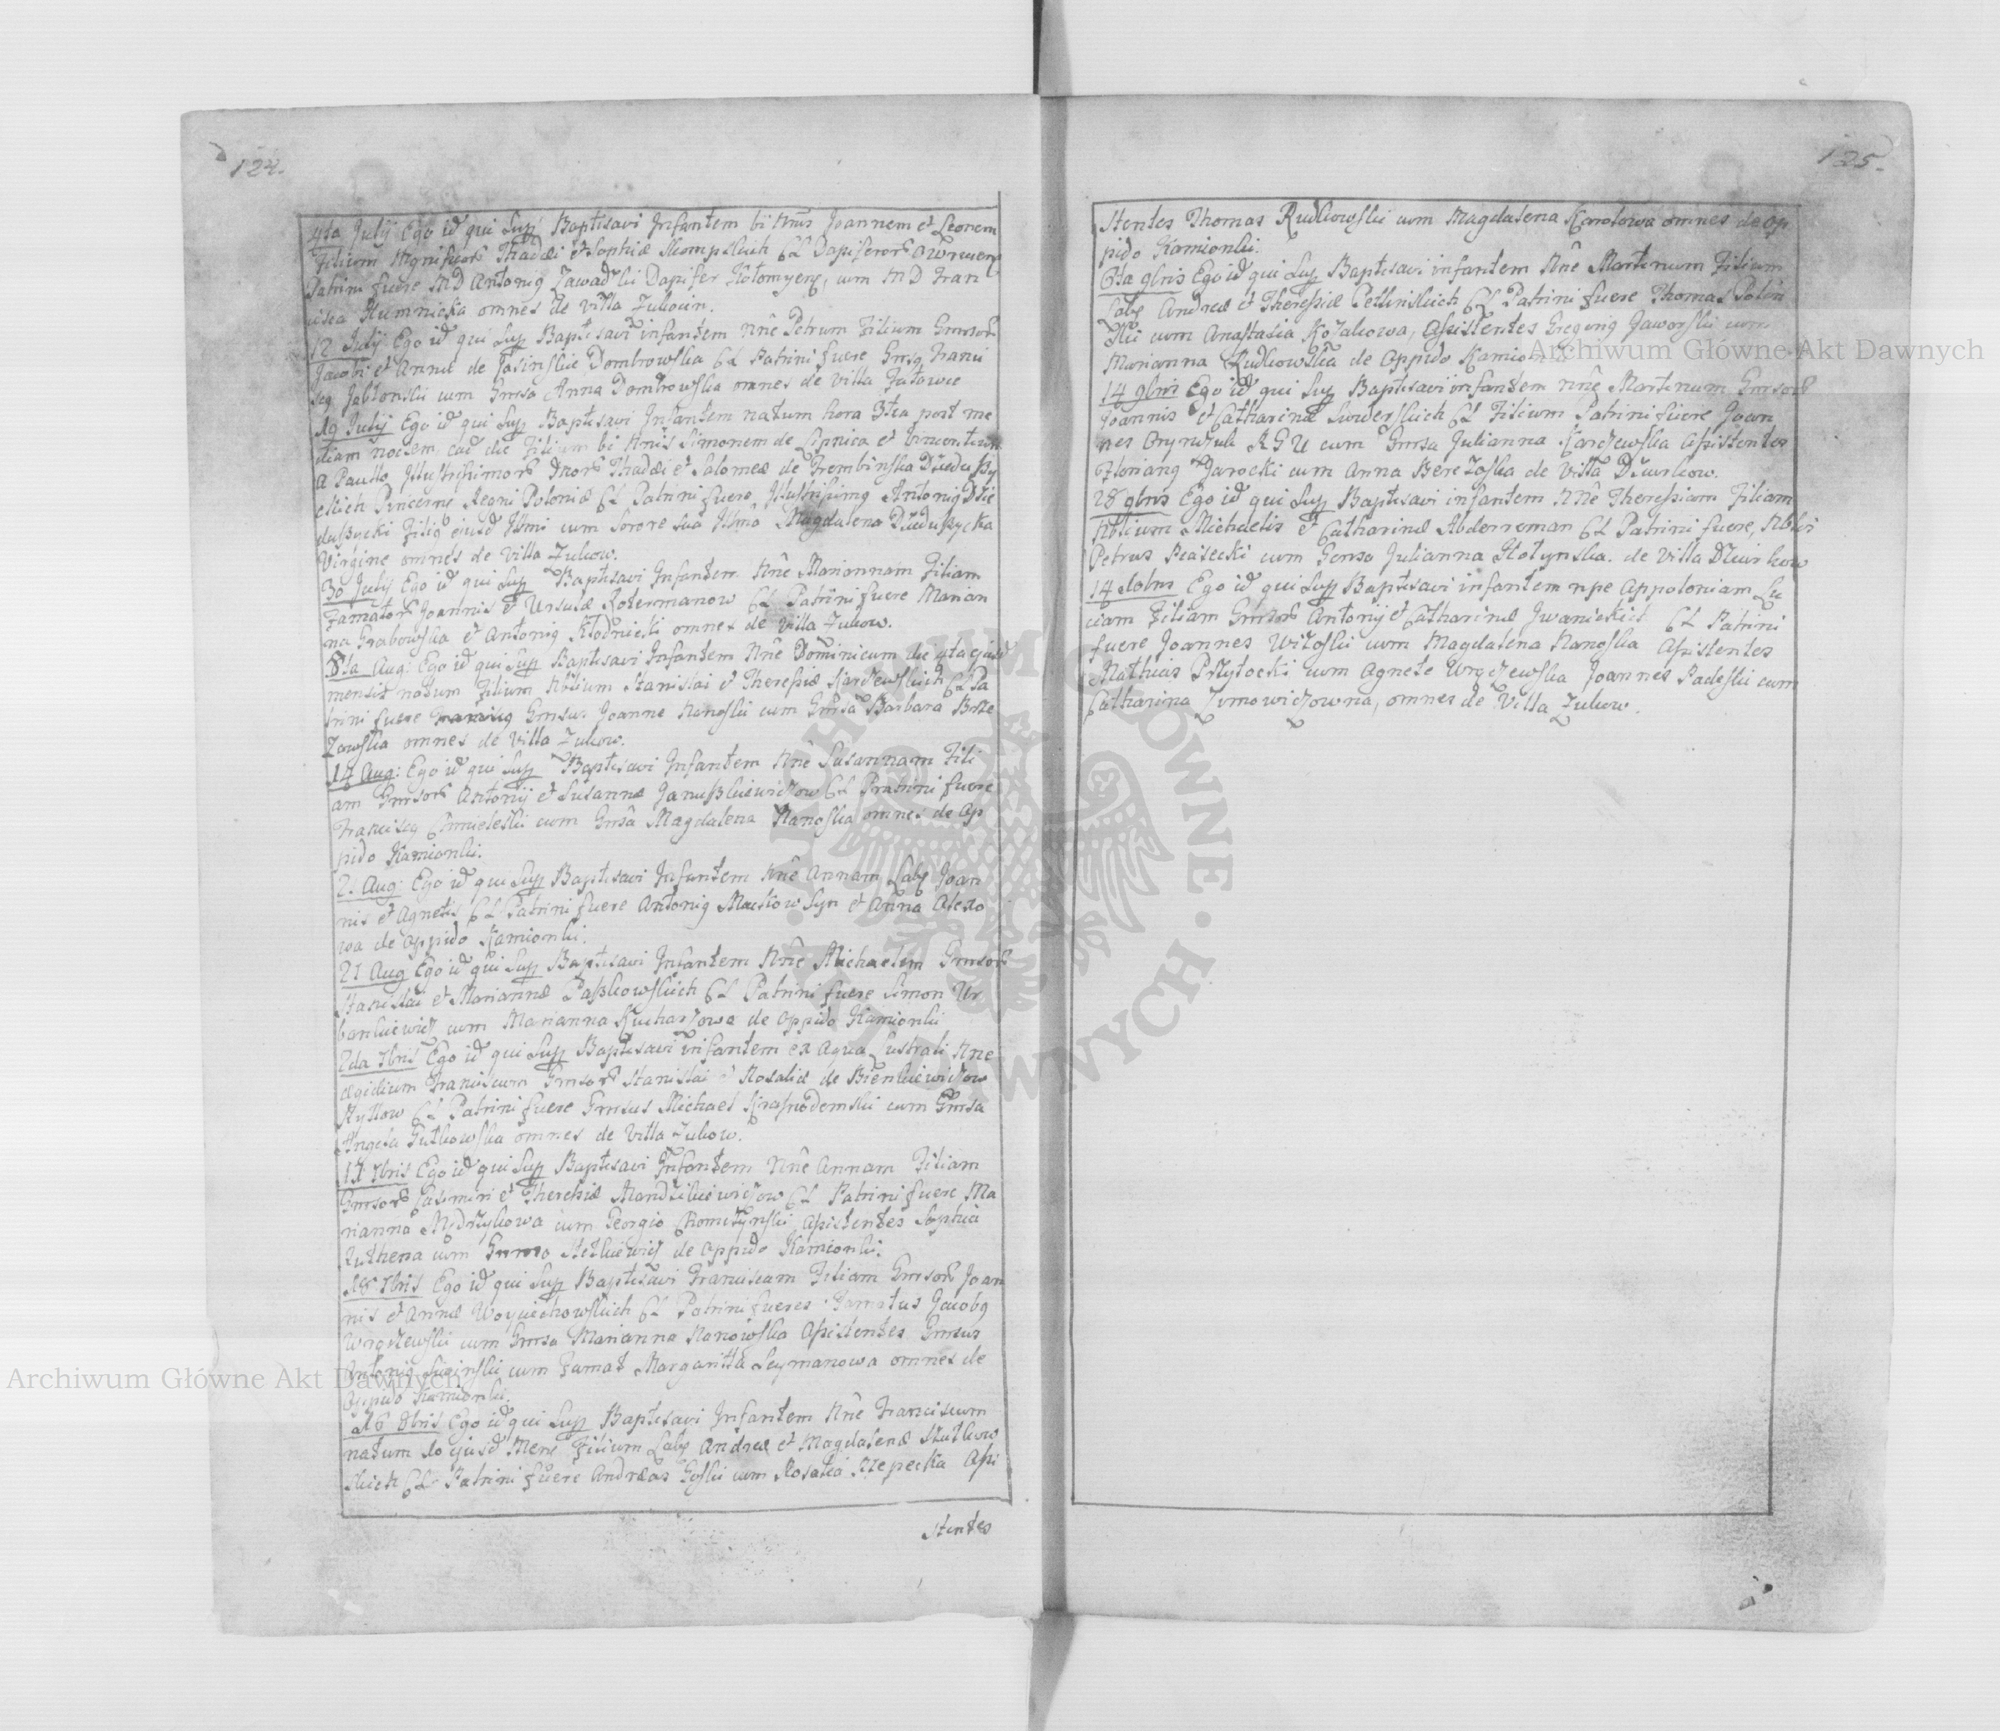 124.
4ta Julij Ego id qui Supp Baptisavi Infantem bi Nnis Joannem et Leonem
Filium Thadæi et Sophiæ CL Dapiferor
Patrini fuere MD Antonig Zawadzki Dapifer cum MD Fran
cisca Humnicka omnes de Villa
12 Julij Ego id qui Supp Baptisavi infantem Nne Petrum Filium Gnrsor
Jacobi et Annæ de Jasinskie Dombrowska CL Patrini fuere Gnrsg Franci
scg Jablonski cum Gnrsa Anna Dombrowska omnes de Villa
19 Julij Ego id qui Supp Baptisavi Infantem natum hora 3tia post me
diam noctem, ead die Filium bi Nnis Simonem de Lipnica et Vincentium
a Paullo Illustrissimor Dnor Thadæi et Salomeæ de Trembinska Dzieduszy
ckich Pincernæ Regni Poloniæ CL Patrini fuere Illustrissimg Antonig Dzie
duszycki Filig ejusd Illmi cum Sorore sua Illma Magdalena Dzieduszycka
Virgine omnes de Villa Zukow.
30 Julij Ego id qui Supp Baptisavi Infantem Nne Mariannam Filiam
Famator Joannis et Ursulæ Rotermanow CL Patrini fuere Marian
na Grabowska et Antonig Kłodnicki omnes de Villa Zukow.
8ta Aug: Ego id qui Supp Baptisavi Infantem Nne Dominicum die 4ta ejusd
mensis natum Filium Nblium Stanislai et Theresiæ Karczewskich CL Pa
trini fuere Gnrsus Joanne Nanoski cum Gnrsa Barbara Brze
zowska omnes de Villa Zukow.
14 Aug: Ego id qui Supp Baptisavi Infantem Nne Susannam Fili
am Gnrsor Antonij et Susannæ Januszkiewiczow CL Pratrini fuere
Franciscg Chmieleski cum Gnrsa Magdalena Nanoska omnes de Op
pido Kamionki.
21 Aug: Ego id qui Supp Baptisavi Infantem Nne Annam Lab Joan
nis et Agnetis CL Patrini fuere Antonig Syn et Anna Alexo
wa de Oppido Kamionki.
21 Aug Ego id qui Supp Baptisavi Infantem Nne Michaelem Gnrsor
Stanislai et Mariannæ Paszkowskich CL Patrini fuere Simon Ur
bankiewicz cum Marianna Kucharzowa de Oppido Kamionki
2da 7bris Ego id qui Supp Baptisavi infantem ex Aqua Lustrali Nne
Ægidium Franciscum Gnrsor Stanislai et Rosaliæ de Bienkiewiczow
CL Patrini fuere Gnrsus Michael cum Gnrsa
Angela Gutkowska omnes de Villa Zukow.
17 7bris Ego id qui Supp Baptisavi Infantem Nne Annam Filiam
Gnrsor Casimiri et Theresiæ CL Patrini fuere Ma
rianna cum Georgio Assistentes Sophia
Ruthena cum de Oppido Kamionki.
18 7bris Ego id qui Supp Baptisavi Franciscam Filiam Gnrsor Joan
nis et Annæ Woyciechowskich CL Patrini fueres Famatus Jacobg
cum Gnrsa Marianna Nanowska Assistentes Gnrsus
Antonig cum Famat Margaritta Seymanowa omnes de
Oppido Kamionki.
16 8bris Ego id qui Supp Baptisavi Infantem Nne Franciscum
natum 10 ejusd Mens Filium Lab Andreæ et Magdalenæ Rutkow
skich CL Patrini fuere Andreas Goski cum Rosalia Rzepecka Assi
stentes
125.
stentes Thomas Rudkowski cum Magdalena Karolowa omnes de Op
pido Kamionki.
6ta 9bris Ego id qui Supp Baptisavi infantem Nne Martinum Filium
Lab Andreæ et Theresiæ CL Patrini fuere Thomas
cum Anastasia Kozakowa, Assistentes Gregorig Jaworski cum
Marianna Rudkowska de Oppido Kamionki
14 9bris Ego id qui Supp Baptisavi infantem Nne Martinum Gnrsor
Joannis et Catharinæ CL Filium Patrini fuere Joan
nes RGU cum Gnrsa Julianna Karczewska Assistentes
Floriang Jarocki cum Anna Berezoska de Villa Dzwrkow.
28 9bris Ego id qui Supp Baptisavi infantem Nne Theressiam Filiam
Nblium Michaelis et Catharinæ Abderreman CL Patrini fuere, Nblis
Petrus Piasecki cum Genrsa Julianna Hotynska. de Villa Dzwirkow
14 Xbris Ego id qui Supp Baptisavi infantem npe Appoloniam Lu
ciam Filiam Gnrsor Antonij et Catharinæ Iwanickich CL Patrini
fuere Joannes Witoski cum Magdalena Nanoska Assistentes
Mathias Przytocki cum Agnete Joannes Padeski cum
Catharina Zymowiczowna, omnes de Villa Zukow.
Archiwum Główne Akt Dawnych
Archiwum Główne Akt Dawnych
ARCHIWUM GŁÓWNE AKT DAWNYCH